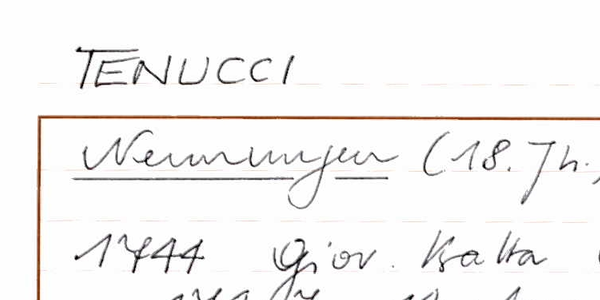 TENUCCI
Nennungen (18. Jh.,
1744 Giov. Batta